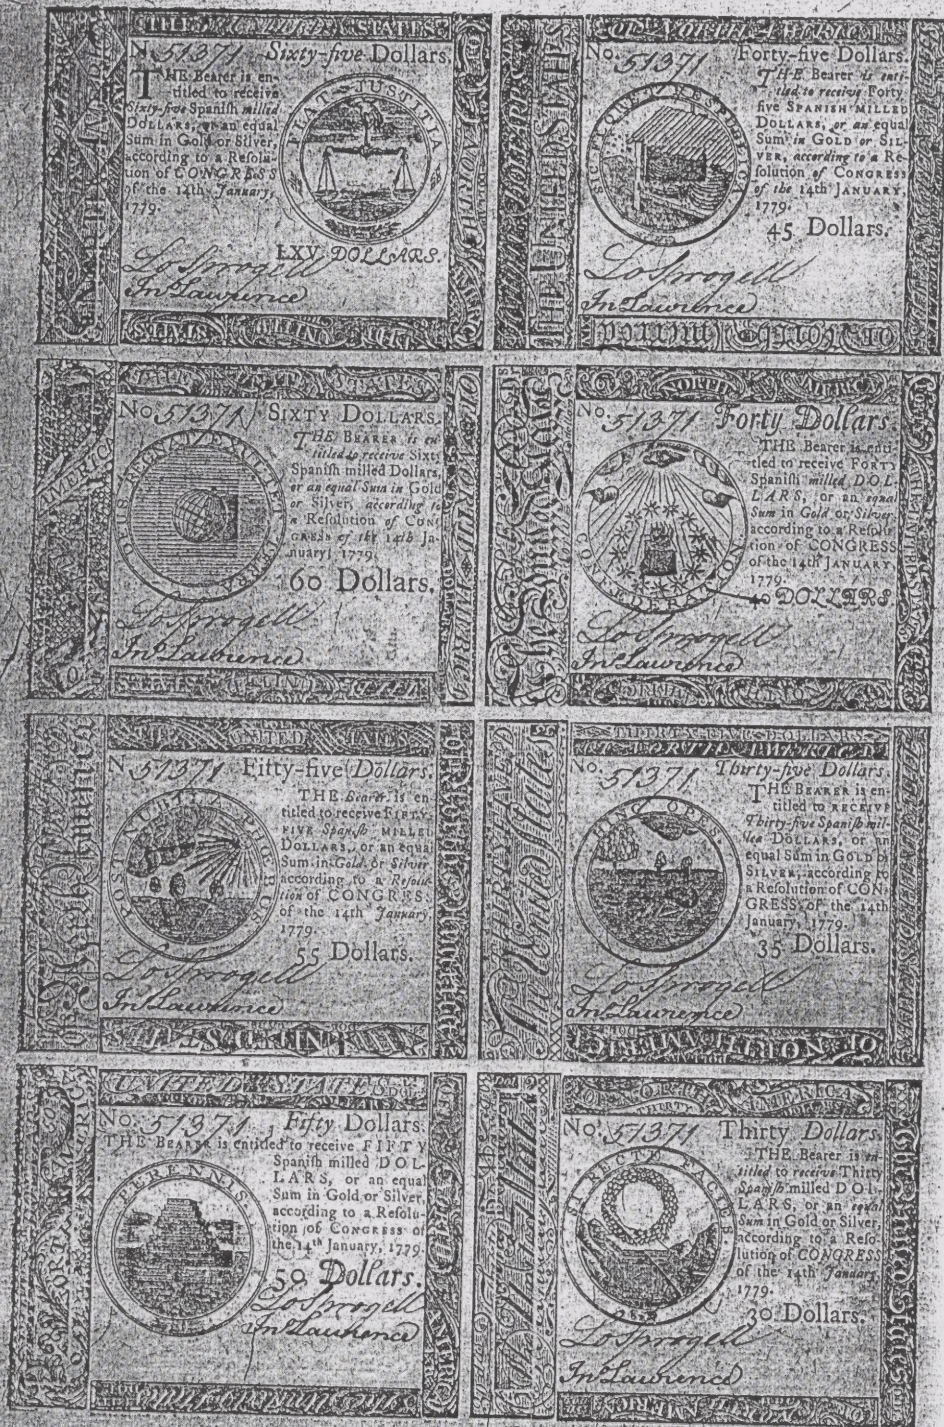 THE UNITED STATES
No. 51371 Sixty-five Dollars.
THE Bearer is en-
titled to receive
Sixty-five Spanish milled
DOLLARS, or an equal
Sum in Gold or Silver,
according to a Resolu-
tion of CONGRESS
of the 14th January,
1779.
FIAT JUSTITIA
LXV DOLLARS.
Lo Sprogell
Jno Lawrence
OF NORTH AMERICA
THE UNITED STATES
No. 51371 Forty-five Dollars.
THE Bearer is enti-
tled to receive Forty-
five SPANISH MILLED
DOLLARS, or an equal
Sum in GOLD or SIL-
VER, according to a Re-
solution of CONGRESS
of the 14th JANUARY,
1779.
SIC FLORET RESPUBLICA
45 Dollars.
Lo Sprogell
Jno Lawrence
No. 51371 SIXTY DOLLARS.
THE BEARER is en-
titled to receive Sixty
Spanish milled Dollars,
or an equal Sum in Gold
or Silver, according to
a Resolution of CON-
GRESS of the 14th Ja-
nuary, 1779.
DEUS REGNAT EXULTET TERRA
60 Dollars.
Lo Sprogell
Jno Lawrence
NORTH AMERICA
No. 51371 Forty Dollars.
THE Bearer is enti-
tled to receive FORTY
Spanish milled DOL-
LARS, or an equal
Sum in Gold or Silver,
according to a Resolu-
tion of CONGRESS
of the 14th JANUARY,
1779.
CONFEDERATION
40 DOLLARS
Lo Sprogell
Jno Lawrence
THE UNITED STATES
No. 51371 Fifty-five Dollars.
THE Bearer is en-
titled to receive FIFTY-
FIVE Spanish MILLED
DOLLARS, or an equal
Sum in Gold or Silver
according to a Resolu-
tion of CONGRESS
of the 14th January,
1779.
POST NUBILA PHŒBUS
55 Dollars.
Lo Sprogell
Jno Lawrence
UNITED STATES
THIRTY-FIVE DOLLARS
OF NORTH AMERICA
The United States
No. 51371 Thirty-five Dollars.
THE BEARER is en-
titled to RECEIVE
Thirty-five Spanish mil-
led DOLLARS, or an
equal Sum in GOLD or
SILVER, according to
a Resolution of CON-
GRESS, of the 14th
January, 1779.
HINC OPES.
35 Dollars.
Lo Sprogell
Jno Lawrence
OF NORTH AMERICA
UNITED STATES
No. 51371 Fifty Dollars.
THE BEARER is entitled to receive FIFTY
Spanish milled DOL-
LARS, or an equal
Sum in Gold or Silver,
according to a Resolu-
tion of CONGRESS of
the 14th January, 1779.
PERENNIS.
50 Dollars.
Lo Sprogell
Jno Lawrence
OF NORTH AMERICA
No. 51371 Thirty Dollars.
THE Bearer is en-
titled to receive Thirty
Spanish milled DOL-
LARS, or an equal
Sum in Gold or Silver,
according to a Reso-
lution of CONGRESS
of the 14th January
1779.
SI RECTE FACIES.
30 Dollars.
Lo Sprogell
Jno Lawrence